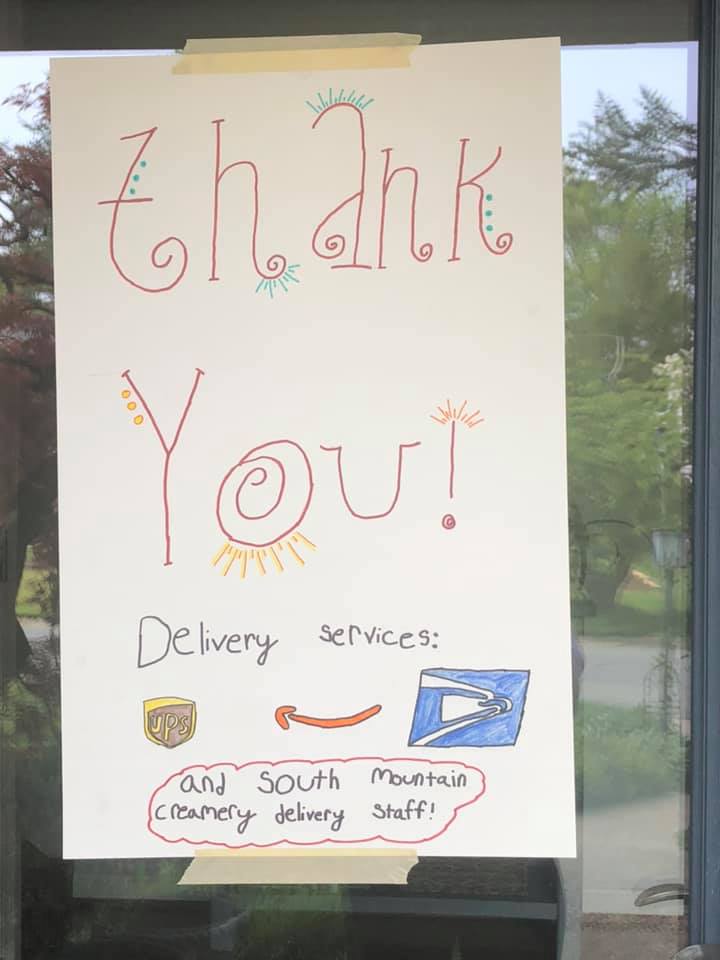 thank
You!
Delivery services:
UPS
and South Mountain
creamery delivery staff!